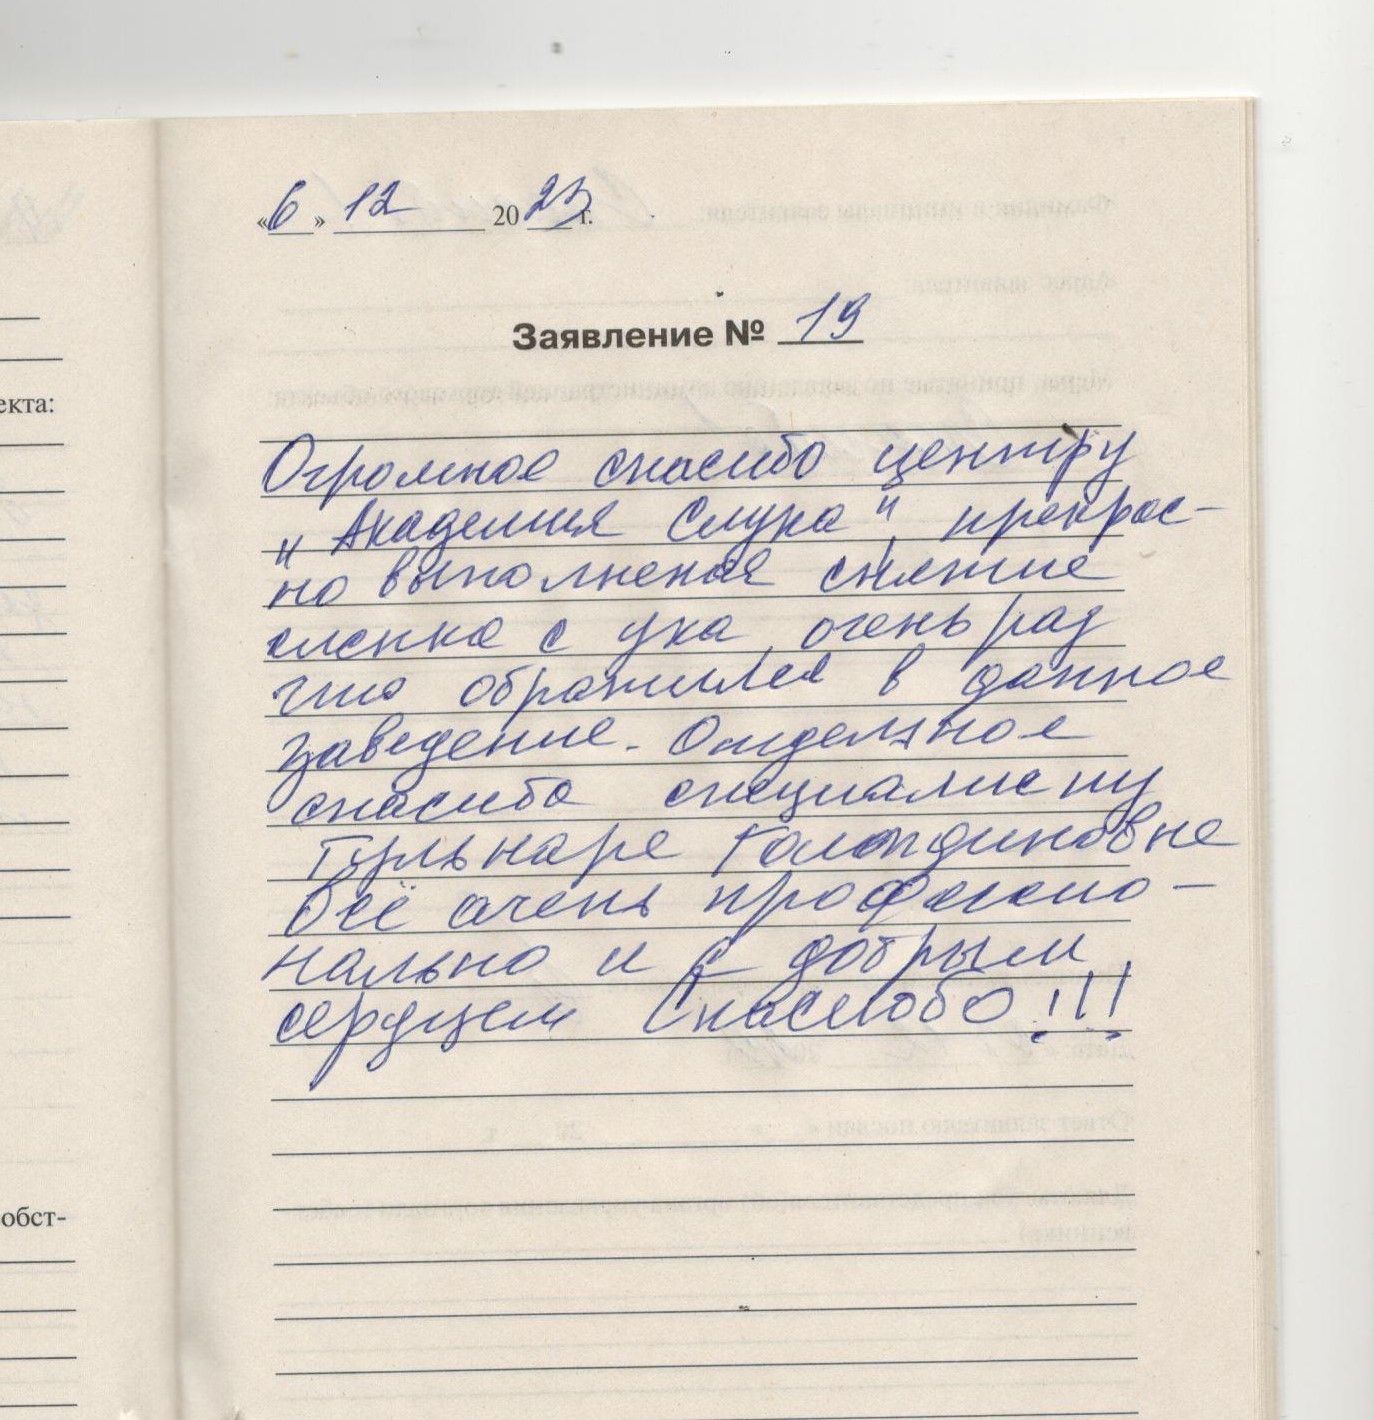 «6» 12 2023 г.
Заявление № 19
екта:
Огромное спасибо центру
"Академия Слуха", прекрас-
но выполненое снятие
слепка с уха, очень рад
что обратился в данное
заведение. Отдельное
спасибо специалисту
Гульнаре
Всё очень професио-
нально и с добрым
сердцем Спасибо!!!
обст-